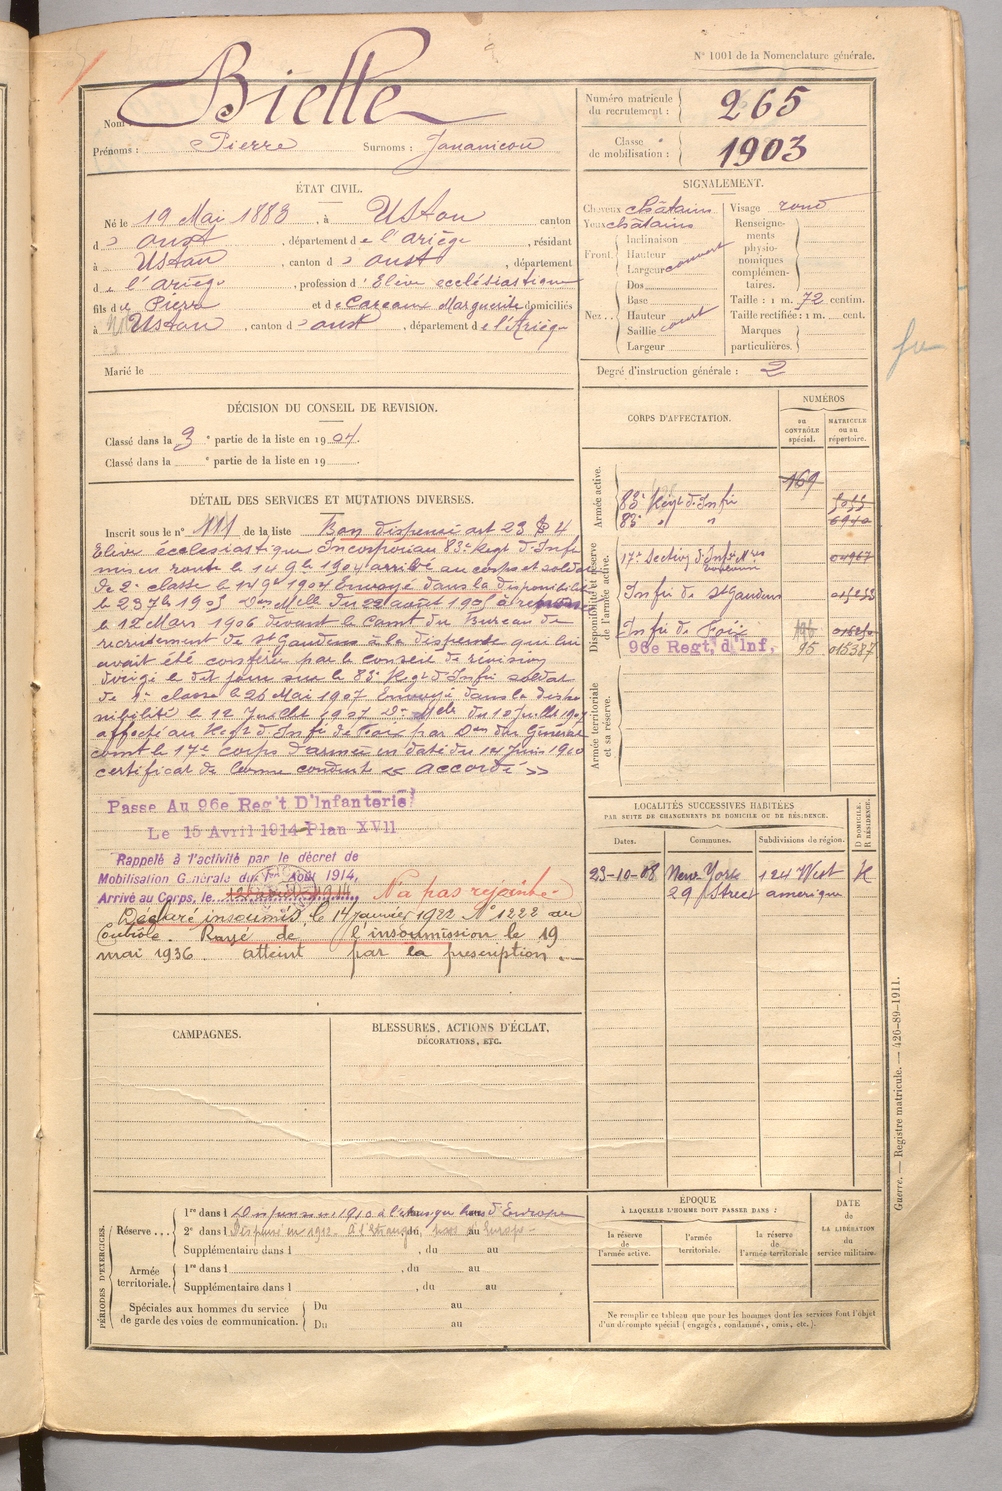 N° 1001 de la Nomenclature générale.
Nom : Bielle
Prénoms : Pierre Surnoms : Jouanicou
Numéro matricule du recrutement : 265
Classe de mobilisation : 1903
ÉTAT CIVIL.
Né le 19 Mai 1883, à Ustou canton
d'oust, département de l'ariège, résidant
à Ustou, canton d'oust, département
de l'ariège, profession d'Elève ecclésiastique
fils de Pierre et de Careaux Marguerite domiciliés
à Ustou, canton d'oust, département de l'Ariège
Marié le
SIGNALEMENT.
Cheveux châtains
Yeux châtains
Front. Inclinaison
Hauteur
Largeur couvert
Nez... Dos
Base
Hauteur
Saillie court
Largeur
Visage rond
Renseignements physionomiques complémentaires.
Taille : 1 m. 72 centim.
Taille rectifiée : 1 m. cent.
Marques particulières.
Degré d'instruction générale : 2
DÉCISION DU CONSEIL DE REVISION.
Classé dans la 3e partie de la liste en 1904.
Classé dans la e partie de la liste en 19
DÉTAIL DES SERVICES ET MUTATIONS DIVERSES.
Inscrit sous le n° 111 de la liste Bon dispensé art 23 § 4
Elève écclesiastique Incorporé au 83e Regt d'Infie
mis en route le 14 9bre 1904 arrivé au corps et soldat
de 2e classe le 14 9bre 1904 Envoyé dans la disponibilité
le 23 7bre 1905 Don Melle du 22 août 1905 à
le 12 Mars 1906 devant le Comt du Bureau de
recrutement de St Gaudens à la dispense qui lui
avait été conférée par le conseil de révision
dirigé le dit jour sur le 83e Regt d'Infie soldat
de 1e classe le 26 Mai 1907 Envoyé dans la dispo
nibilité le 12 Juillet 1907 Don Melle du 10 Juillet 1907
affecté au Regt d'Infie de Foix par Don du Général
comt le 17e corps d'armée en date du 14 Juin 1900
certificat de bonne conduite « Accordé »
Passe Au 96e Reg't D'Infanterie
Le 15 Avril 1914 Plan XVII
Rappelé à l'activité par le décret de
Mobilisation Générale du 1er Août 1914,
Arrivé au Corps, le N'a pas rejoint
Déclaré insoumis le 14 janvier 1922 N° 1222 au
Contrôle. Rayé de l'insoumission le 19
mai 1936 atteint par la prescription.
CORPS D'AFFECTATION.
NUMÉROS
DU CONTRÔLE spécial.
MATRICULE ou au répertoire.
Armée active.
169
83e Regt d'Infie
83e " " 6940
Disponibilité et réserve de l'armée active.
17e Section d'Infirs Mres 04967
Infie de St Gaudens
Infie de Foix 196
96e Regt, d'Inf, 95 015387
Armée territoriale et sa réserve.
LOCALITÉS SUCCESSIVES HABITÉES
PAR SUITE DE CHANGEMENTS DE DOMICILE OU DE RÉSIDENCE.
Dates. Communes. Subdivisions de région. D DOMICILE. R RÉSIDENCE.
23-10-08 New York 124 West R
29 Street amerique
CAMPAGNES.
BLESSURES, ACTIONS D'ÉCLAT,
DÉCORATIONS, ETC.
PÉRIODES D'EXERCICES.
Réserve... 1re dans l Dispensé en 1910 à l'étranger hors d'Europe
2e dans l Dispensé en 1912. à l'étranger, hors d'Europe
Supplémentaire dans l , du au
Armée territoriale. 1re dans l , du au
Supplémentaire dans l , du au
Spéciales aux hommes du service de garde des voies de communication. Du au
Du au
ÉPOQUE
À LAQUELLE L'HOMME DOIT PASSER DANS :
la réserve de l'armée active.
l'armée territoriale.
la réserve de l'armée territoriale
DATE de LA LIBÉRATION du service militaire.
Ne remplir ce tableau que pour les hommes dont les services font l'objet
d'un décompte spécial (engagés, condamnés, omis, etc.).
Guerre. — Registre matricule. — 426-89-1911.